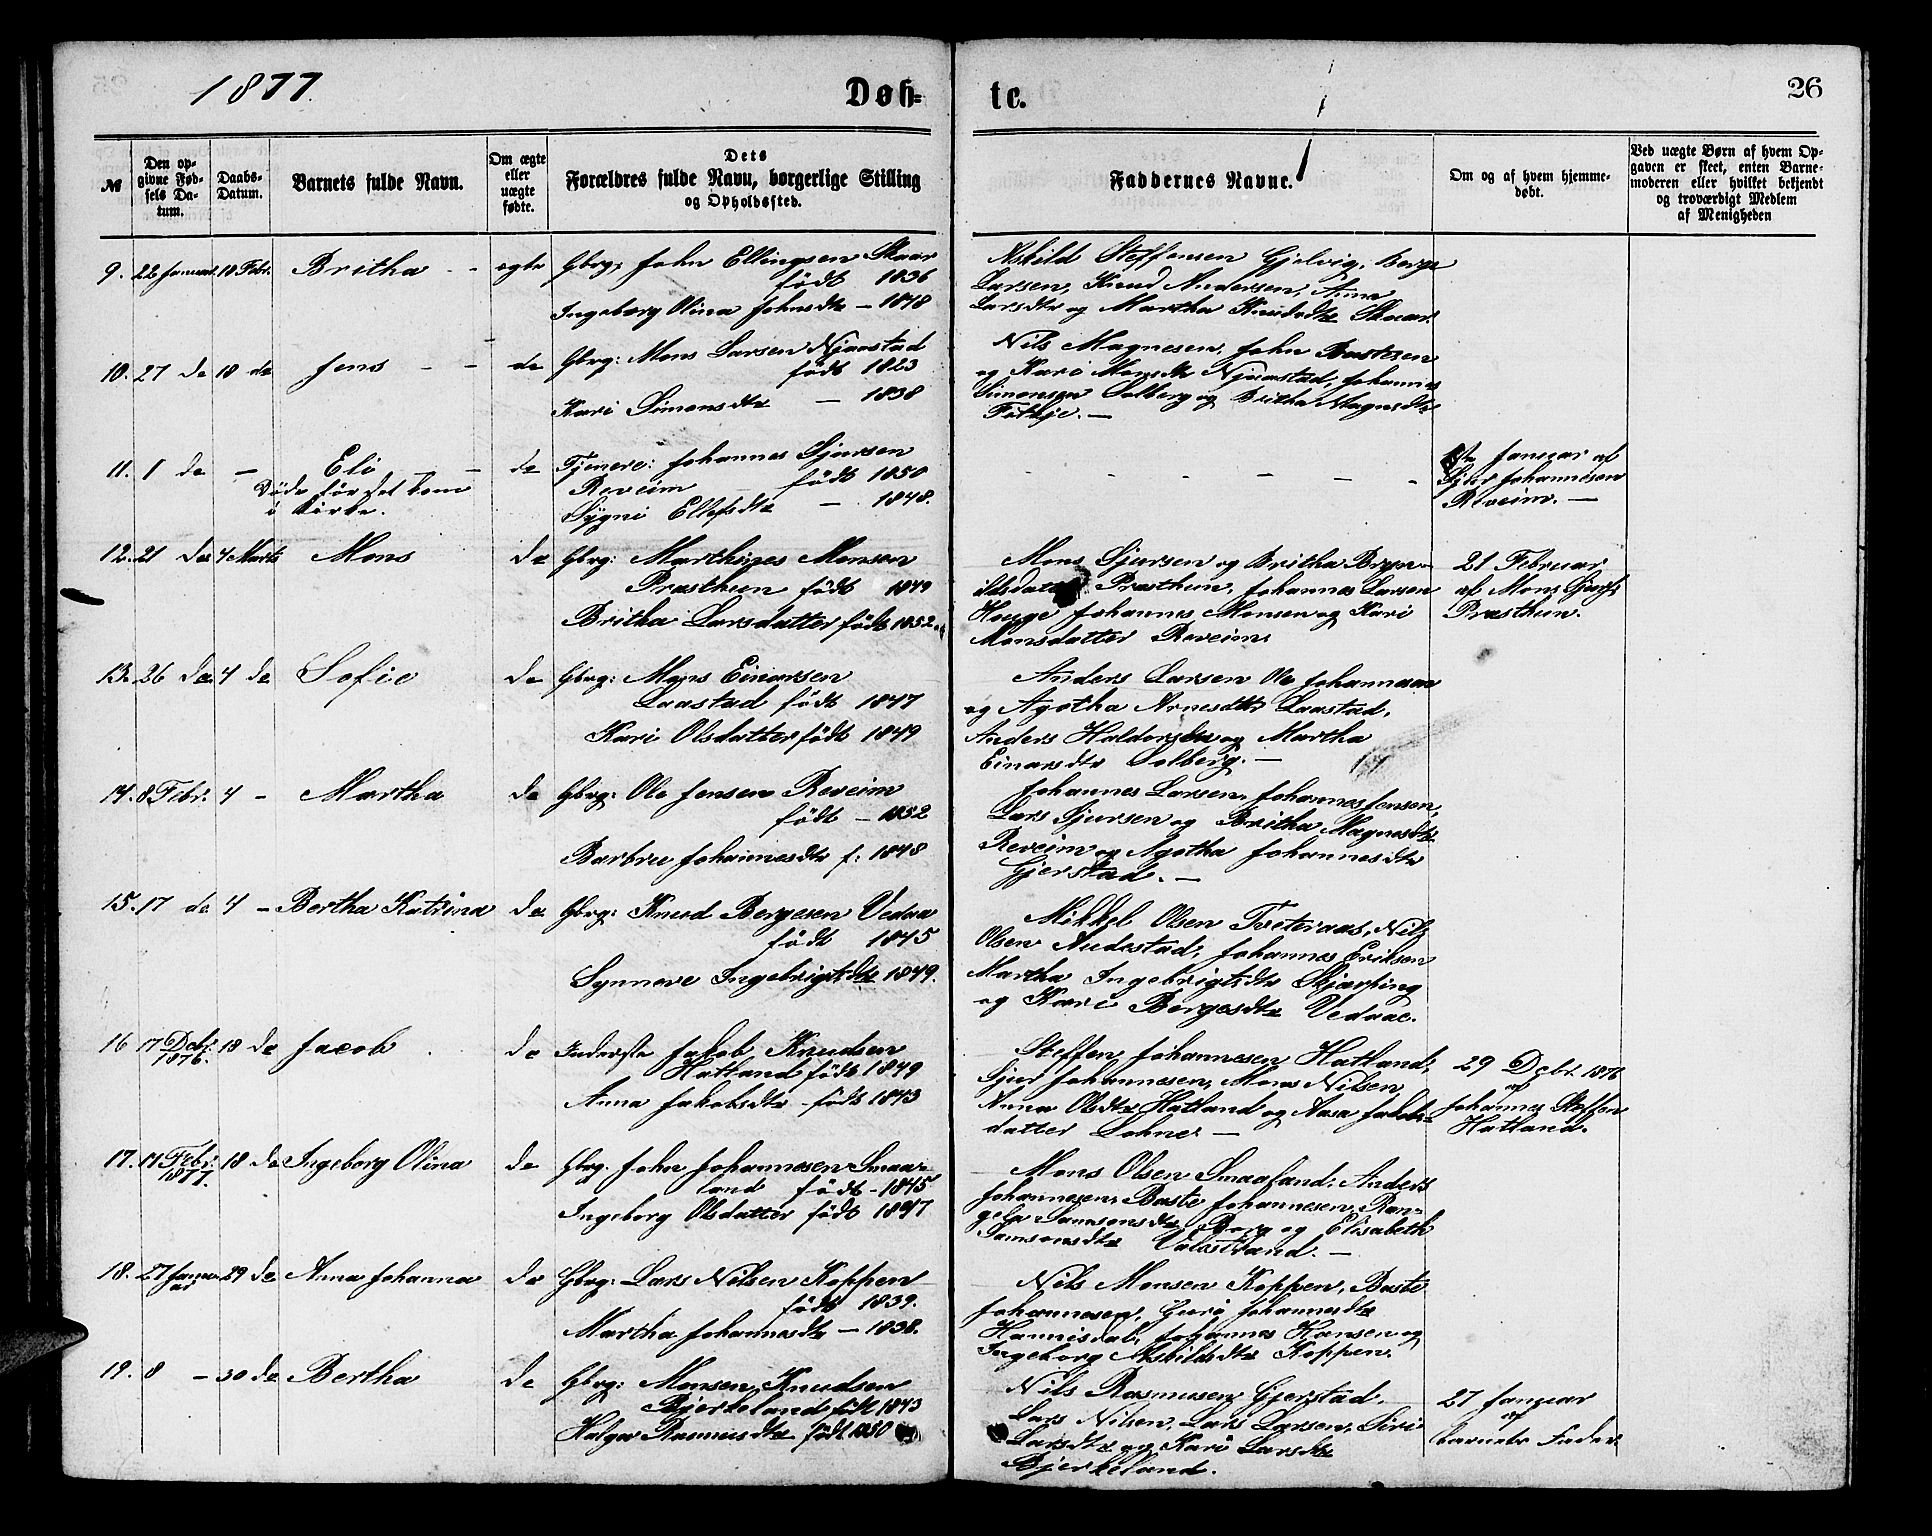 1877.
Døb-
te.
26
№
Den op-
givne Fød-
sels Da-
tum.
Daabs-
Datum.
Barnets fulde Navn.
Om ægte
eller
uægte
fødte.
Dets
Forældres fulde Navn, borgerlige Stilling
og Opholdssted.
Faddernes Navne.
Om og af hvem hjemme-
døbt.
Ved uægte Børn af hvem Op-
gaven er skeet, enten Barne-
moderen eller hvilket bekjendt
og troværdigt Medlem
af Menigheden
9. 22 Januar 18 Febr. Britha - - egte Gbrg: John Ellingsen Skaar
født 1836
Ingeborg Olina Johnsdtr - 1848
Askild Steffensen Gjelvig, Børge
Larsen, Knud Andersen, Anna
Larsdtr og Martha Knudsdtr Skaar.
10. 27 de 18 de Jens - - de Gbrg: Mons Larsen Njaastad
født 1823
Kari Simonsdtr - 1838
Nils Magnesen, John Bastesen
og Kari Monsdtr Njaastad, Johannes
Simonsen Solberg og Britha Magnsdtr
11. 1 de - Eli - - de Tjenere: Johannes Sjursen
Røveim født 1850
Sygni Ellefsdtr - 1848.
Døde før det kom
i Kirke.
- - - - - -
Januar af
Sjur Johannesen
Røveim. -
12. 21 de 4 Marts Mons de Gbrg: Marthines Monsen
Præsthun født 1849
Britha Larsdatter født 1852.
Mons Sjursen og Britha Bryn-
ildsdatter Præsthun, Johannes Larsen
Houge Johannes Monsen og Kari
Monsdatter Røveim
21 Februar
af Mons Sjurs
Præsthun.
13. 26 de 4 de Sofie de Gbrg: Mons Einarsen
Laastad født 1847
Kari Olsdatter født 1849
Anders Larsen Ole Johannesen
og Agotha Arnesdtr Laastad,
Anders Haldorsen og Martha
Einarsdtr Solberg. -
14. 8 Febr. 4 - Martha de Gbrg: Ole Jensen Røveim
født - 1852
Barbru Johannesdtr f: 1848
Johannes Larsen, Johannes Jensen,
Lars Sjursen og Britha Magnesdtr
Røveim og Agotha Johannesdtr
Gjerstad. -
15. 17 de 4 - Bertha Katrina de Gbrg: Knud Børgesen Vedaa
født 1845
Synneve Ingebrigtsdtr 1849.
Mikkel Olsen Tveteraas, Nils
Olsen Audestad, Johannes Eriksen
Martha Ingebrigtsdtr Skjærping
og Kari Børgesdtr Vedaae.
16 17 Dcbr. 18 de Jacob de Inderste Jakob Knudsen
1876.
Hatland født 1849
Anna Jakobsdtr - født 1843
Steffen Johannesen Hatland,
Sjur Johannesen, Mons Nilsen
Anna Olsdtr Hatland og Aasa Jakobs-
datter Lohne. -
29 Dcbr. 1876
af
Johannes Steffen
Hatland.
17. 11 Febr. 18 de Ingeborg Olina de Gbrg: John Johannesen Smaa-
1877.
land født - 1845
Ingeborg Olsdatter født 1847
Mons Olsen Smaaland, Anders
Johannesen, Baste Johannesen, Ran-
gela Samsonsdtr Borg og Elisabeth
Samsonsdtr Valestrand. -
18. 27 Janu- 29 de Anna Johanna de Gbrg: Lars Nilsen Koppen
ar
født 1839.
Martha Johannesdtr - 1838.
Nils Monsen Koppen, Baste
Johannesen, Guro Johannesdtr
Hannisdal, Johannes Hansen og
Ingeborg Askildsdtr Koppen.
19. 8 - 30 de Bertha de Gbrg: Monsen Knudsen
Bjerkeland født 1843
Helga Rasmusdtr født 1850
Nils Rasmusen Gjerstad,
Lars Nilsen, Lars Larsen, Siri
Larsdtr og Kari Larsdtr
Bjerkeland.
27 Januar
af
barnets Fader.